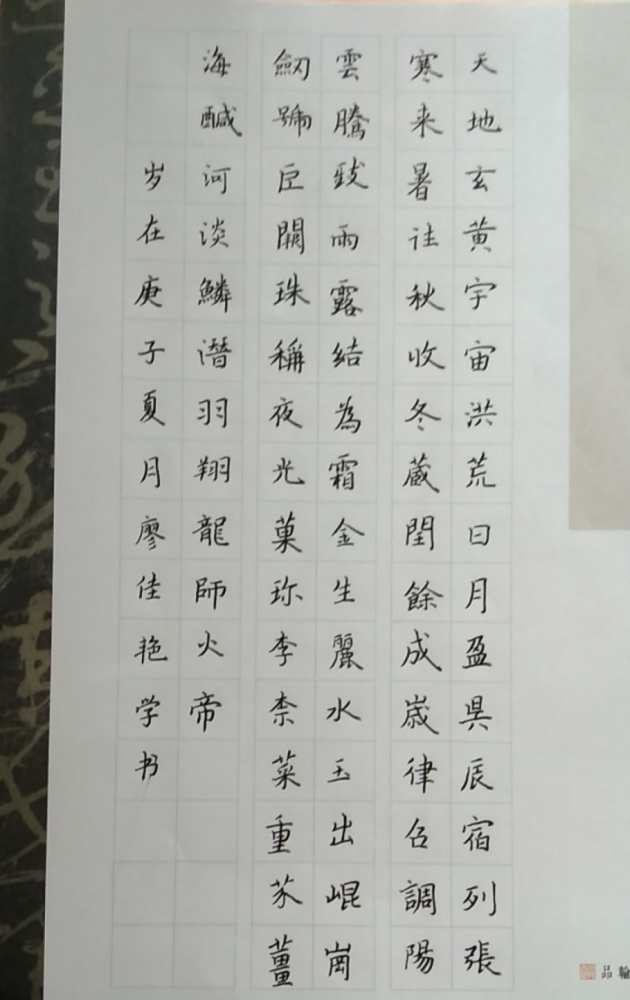 天地玄黄宇宙洪荒日月盈昃辰宿列張
寒来暑往秋收冬蔵閏餘成嵗律召調陽
雲騰致雨露結為霜金生麗水玉出崐崗
劒號巨闕珠稱夜光菓珎李柰菜重芥薑
海醎河淡鱗潛羽翔龍師火帝
岁在庚子夏月廖佳艳学书
品